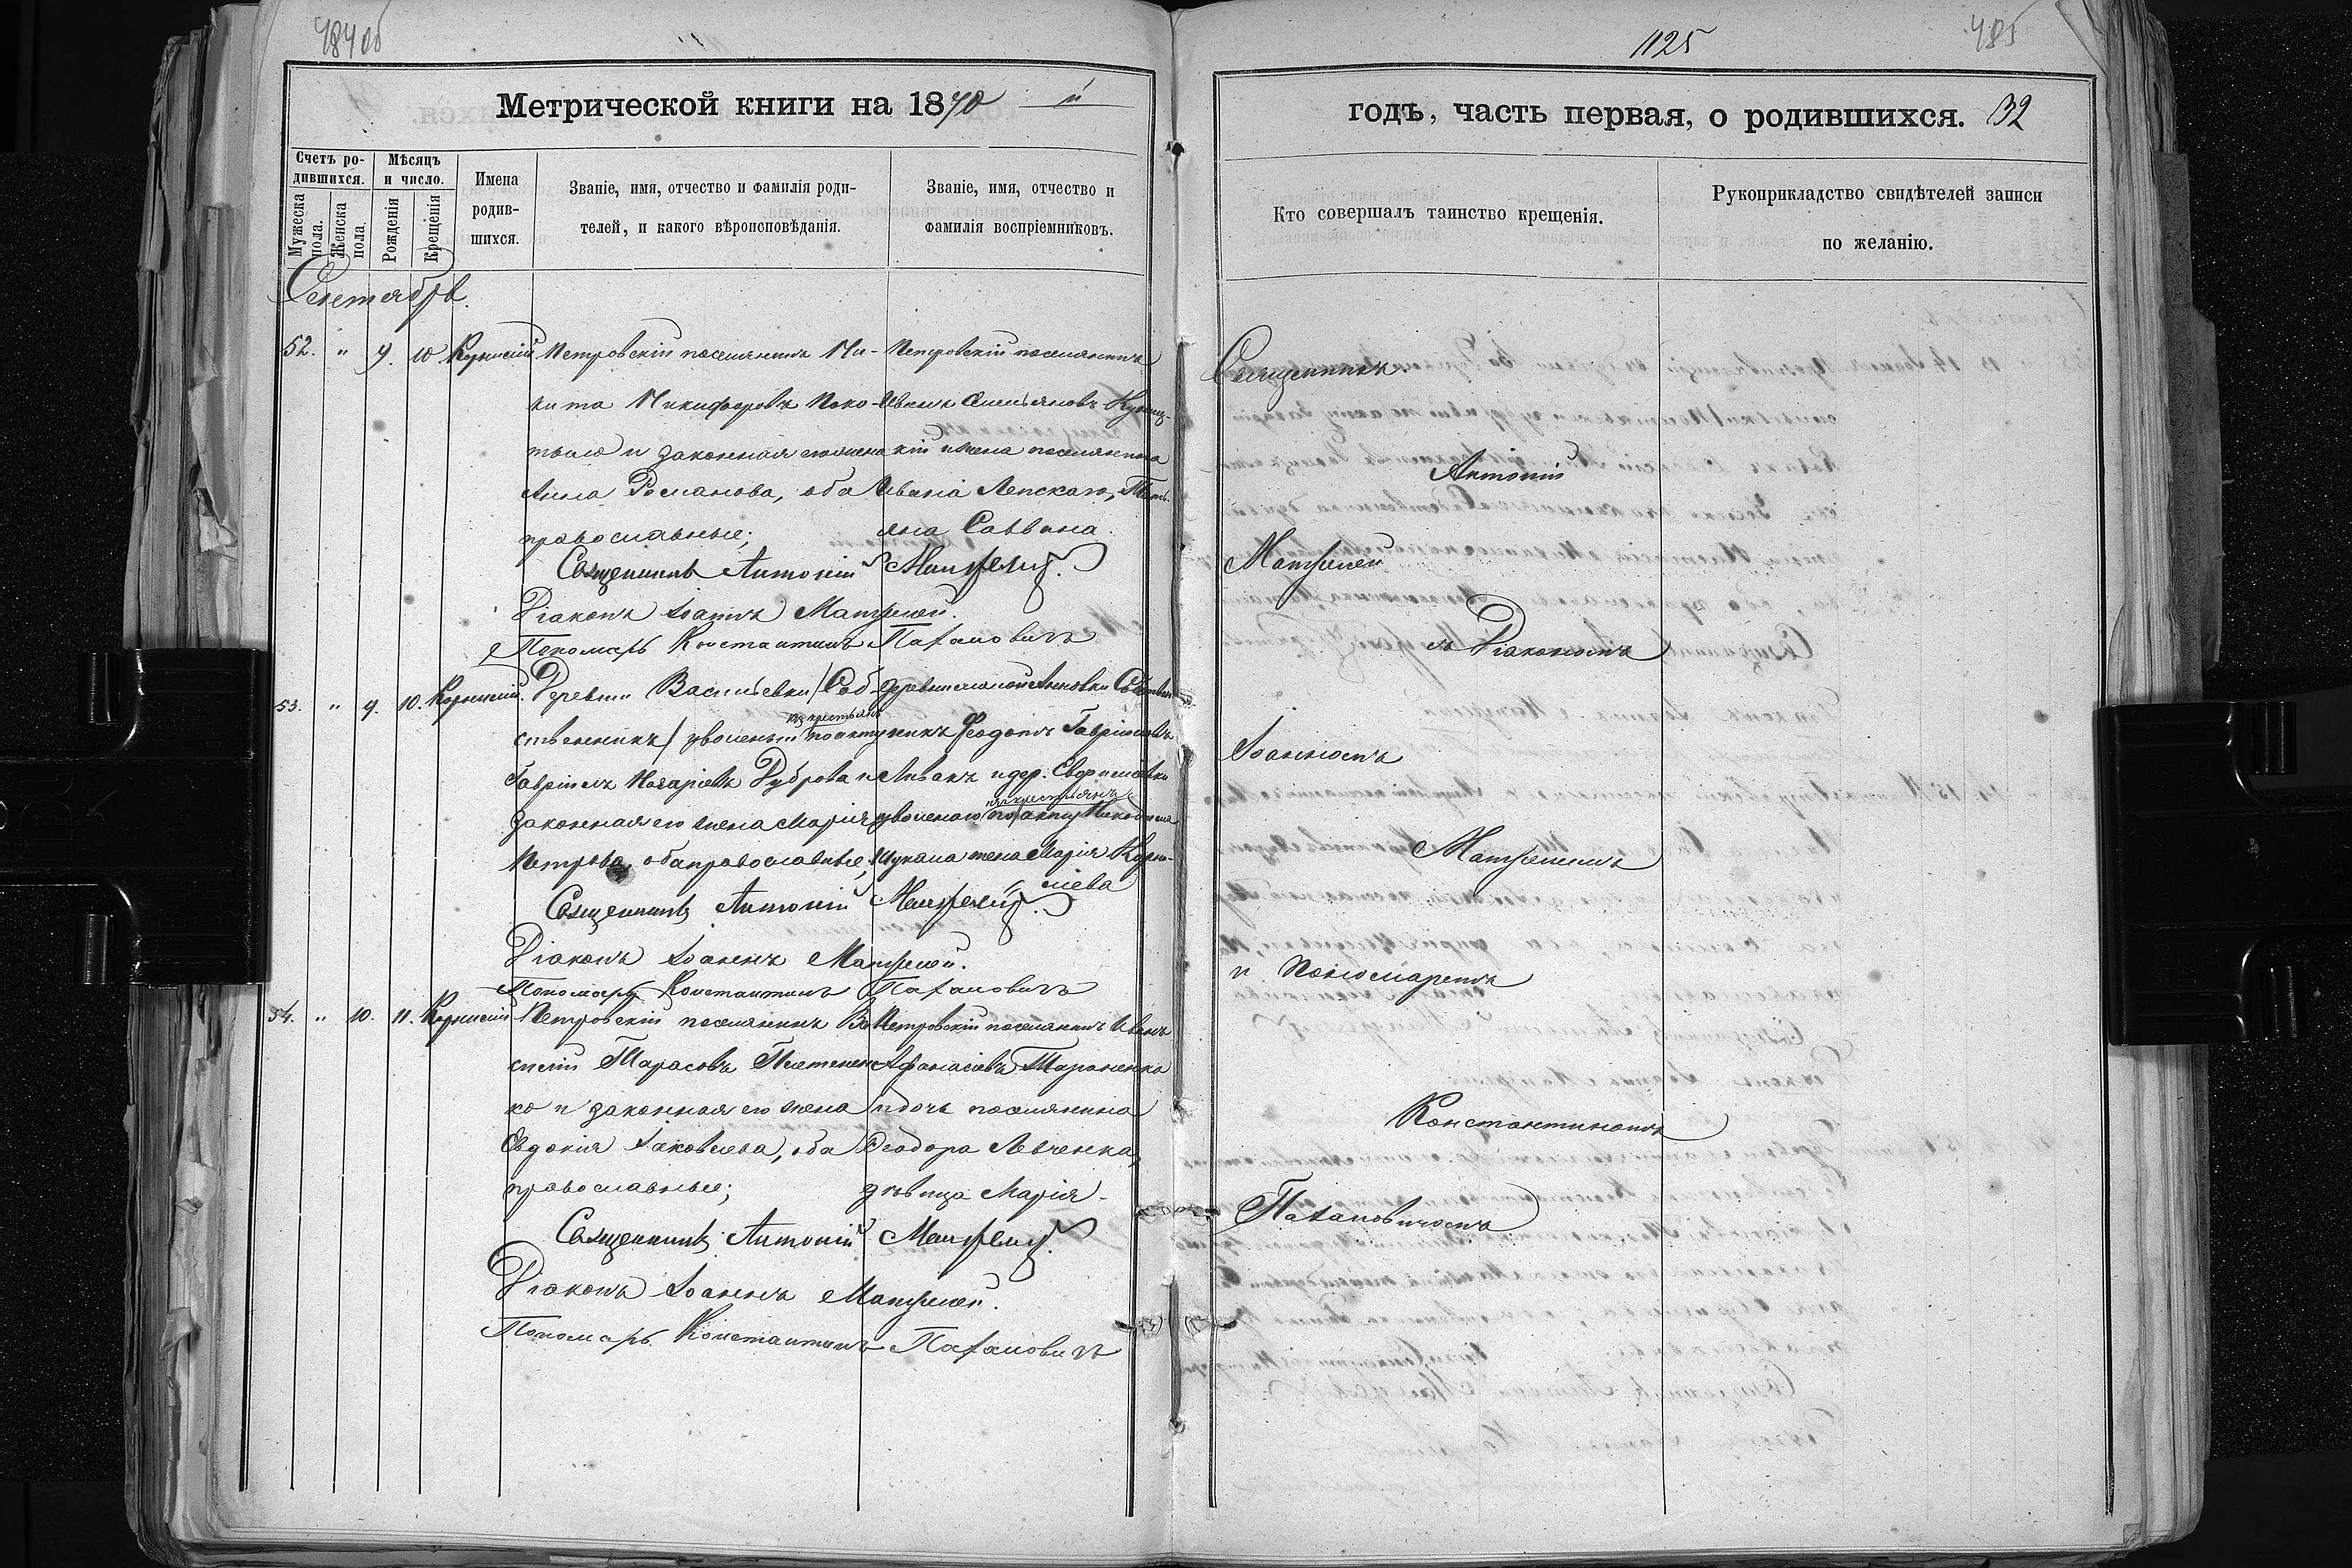 484 об
1125
485
Метрической книги на 1870 й
годъ, часть первая, о родившихся. 32
Счетъ ро-
дившихся.
Мужеска
пола.
Женска
пола.
Мѣсяцъ
и число.
Рожденія
Крещенія
Имена
родив-
шихся.
Званіе, имя, отчество и фамилія роди-
телей, и какого вѣроисповѣданія.
Званіе, имя, отчество и
фамилія воспріемниковъ.
Кто совершалъ таинство крещенія.
Рукоприкладство свидѣтелей записи
по желанію.
Сентябрь.
52. " 9. 10 Корнилій
Петровскій поселянинъ Ни-
кита Никифоровъ Поко-
тыло и законная его жена
Анна Романова, оба
православные;
Петровскій поселянинъ
Иванъ Емельяновъ
кій и жена поселянина
Ивана Лепскаго, Тать-
яна Саввина.
Священникъ Антоній
Діаконъ Іоаннъ
Пономарь Константинъ
53. " 9. 10. Корнилій.
Деревни Васильевки (Соб-
ственникъ) уволеный изъ крестьянъ по акту
Гавріилъ Назаріевъ Дуброва и
законная его жена Марія
Петрова, оба православные;
никъ Феодотъ Гавріиловъ
и дер.
уволенаго изъ крестьянъ по акту
жена Марія Корни-
ліева
Священникъ Антоній
Діаконъ Іоаннъ
Пономарь Константинъ
54. " 10. 11. Корнилій
Петровскій поселянинъ Ва-
силій Тарасовъ
ко и законная его жена
Евдокія Іаковлева, оба
православные;
Петровскій поселянинъ Иванъ
Афанасіевъ Тараненко
и дочь поселянина
Феодора Левченка,
дѣвица Марія.
Священникъ Антоній
Діаконъ Іоаннъ
Пономарь Константинъ
Священникъ
Антоній
съ Діакономъ
Іоанномъ
и Пономаремъ
Константиномъ